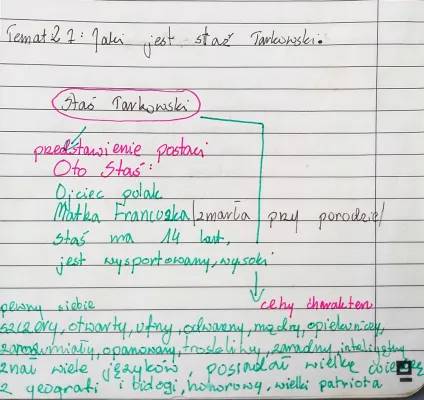 Temat 27: Jaki jest staś Tarkowski.
Staś Tarkowski
przedstawienie postaci
Oto Staś:
Ojciec polak
Matka Francuzka /zmarła przy porodzie/
Staś ma 14 lat,
jest wysportowany, wysoki
pewny siebie
cehy charakteru
szczery, otwarty, ufny, odważny, mądry, opiekuńczy,
zarozumiały, opanowany, troskliwy, zaradny, inteligtny
znał wiele języków, posiadał wielką
z geografi i biologi, honorowy, wielki patriota